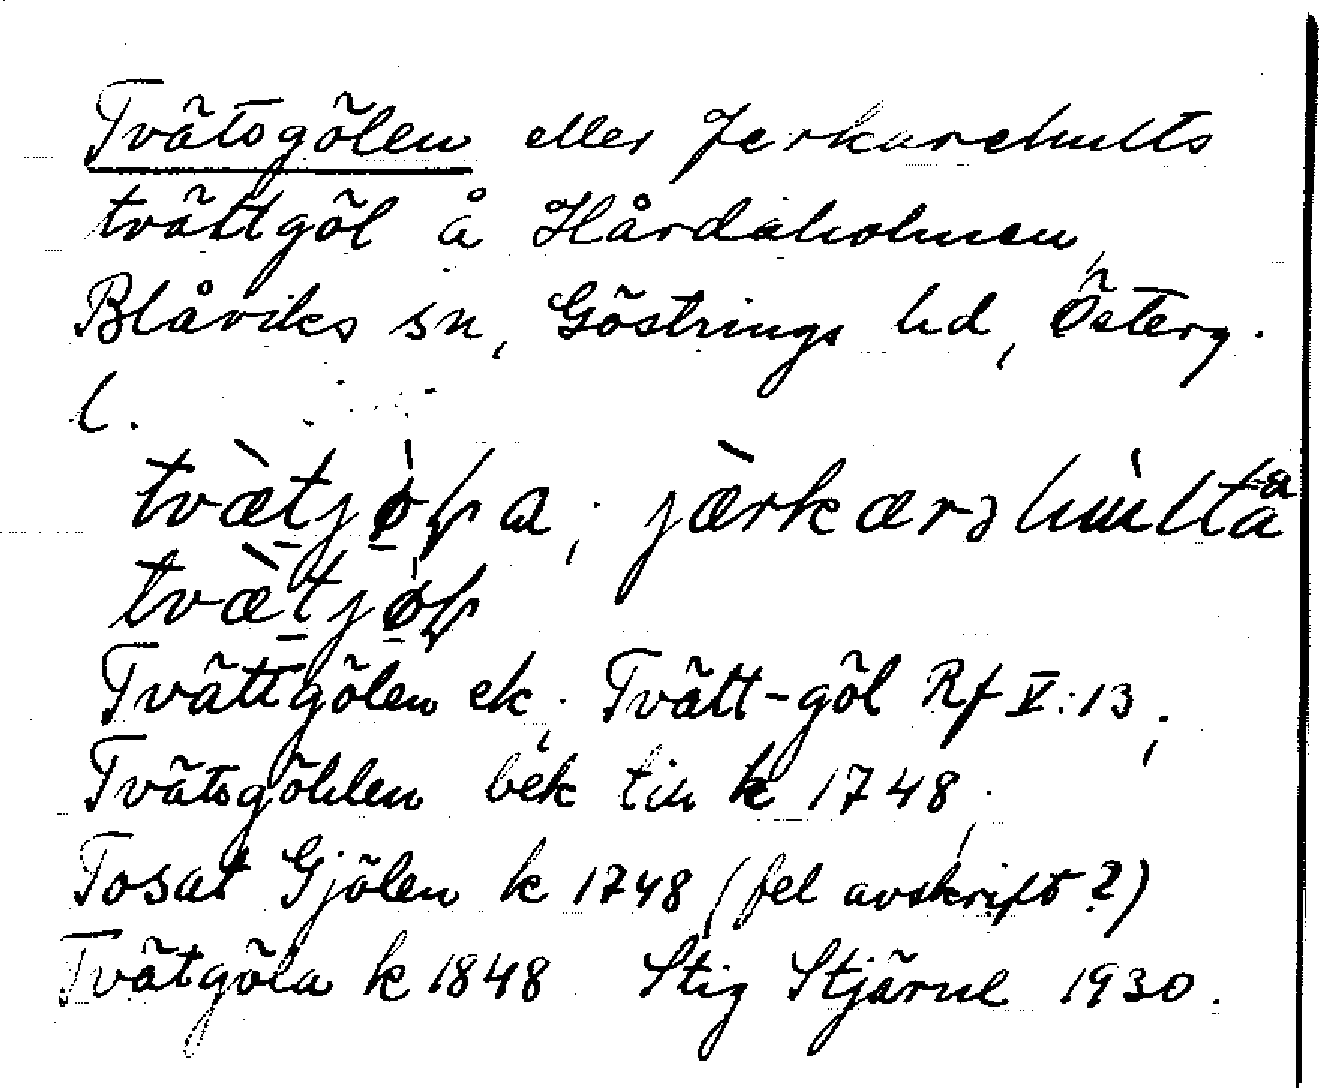 Tvätsgölen eller Jerkarehults
tvättgöl å Hårdaholmen,
Blåviks sn, Göstrings hd, Österg.
l.
tvætjøla; jærkærəhulta
tvætjøl
Tvättgölen ek; Tvätt-göl Rf V:13;
Tvätsgöhlen bek till k 1748;
Tosat Gjölen k 1748 (fel avskrift?)
Tvätgöla k 1848 Stig Stjärnl 1930.